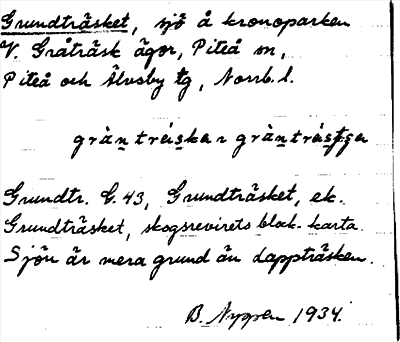 Grundträsket, sjö å kronoparken
V. Gråträsk ägor, Piteå sn,
Piteå och Älvsby tg, Norrb. l.
Grundtr. G. 43, Grundträsket, ek.
Grundträsket, skogsrevirets block-karta.
Sjön är mera grund än Lappträsken.
B. Nyman 1934.